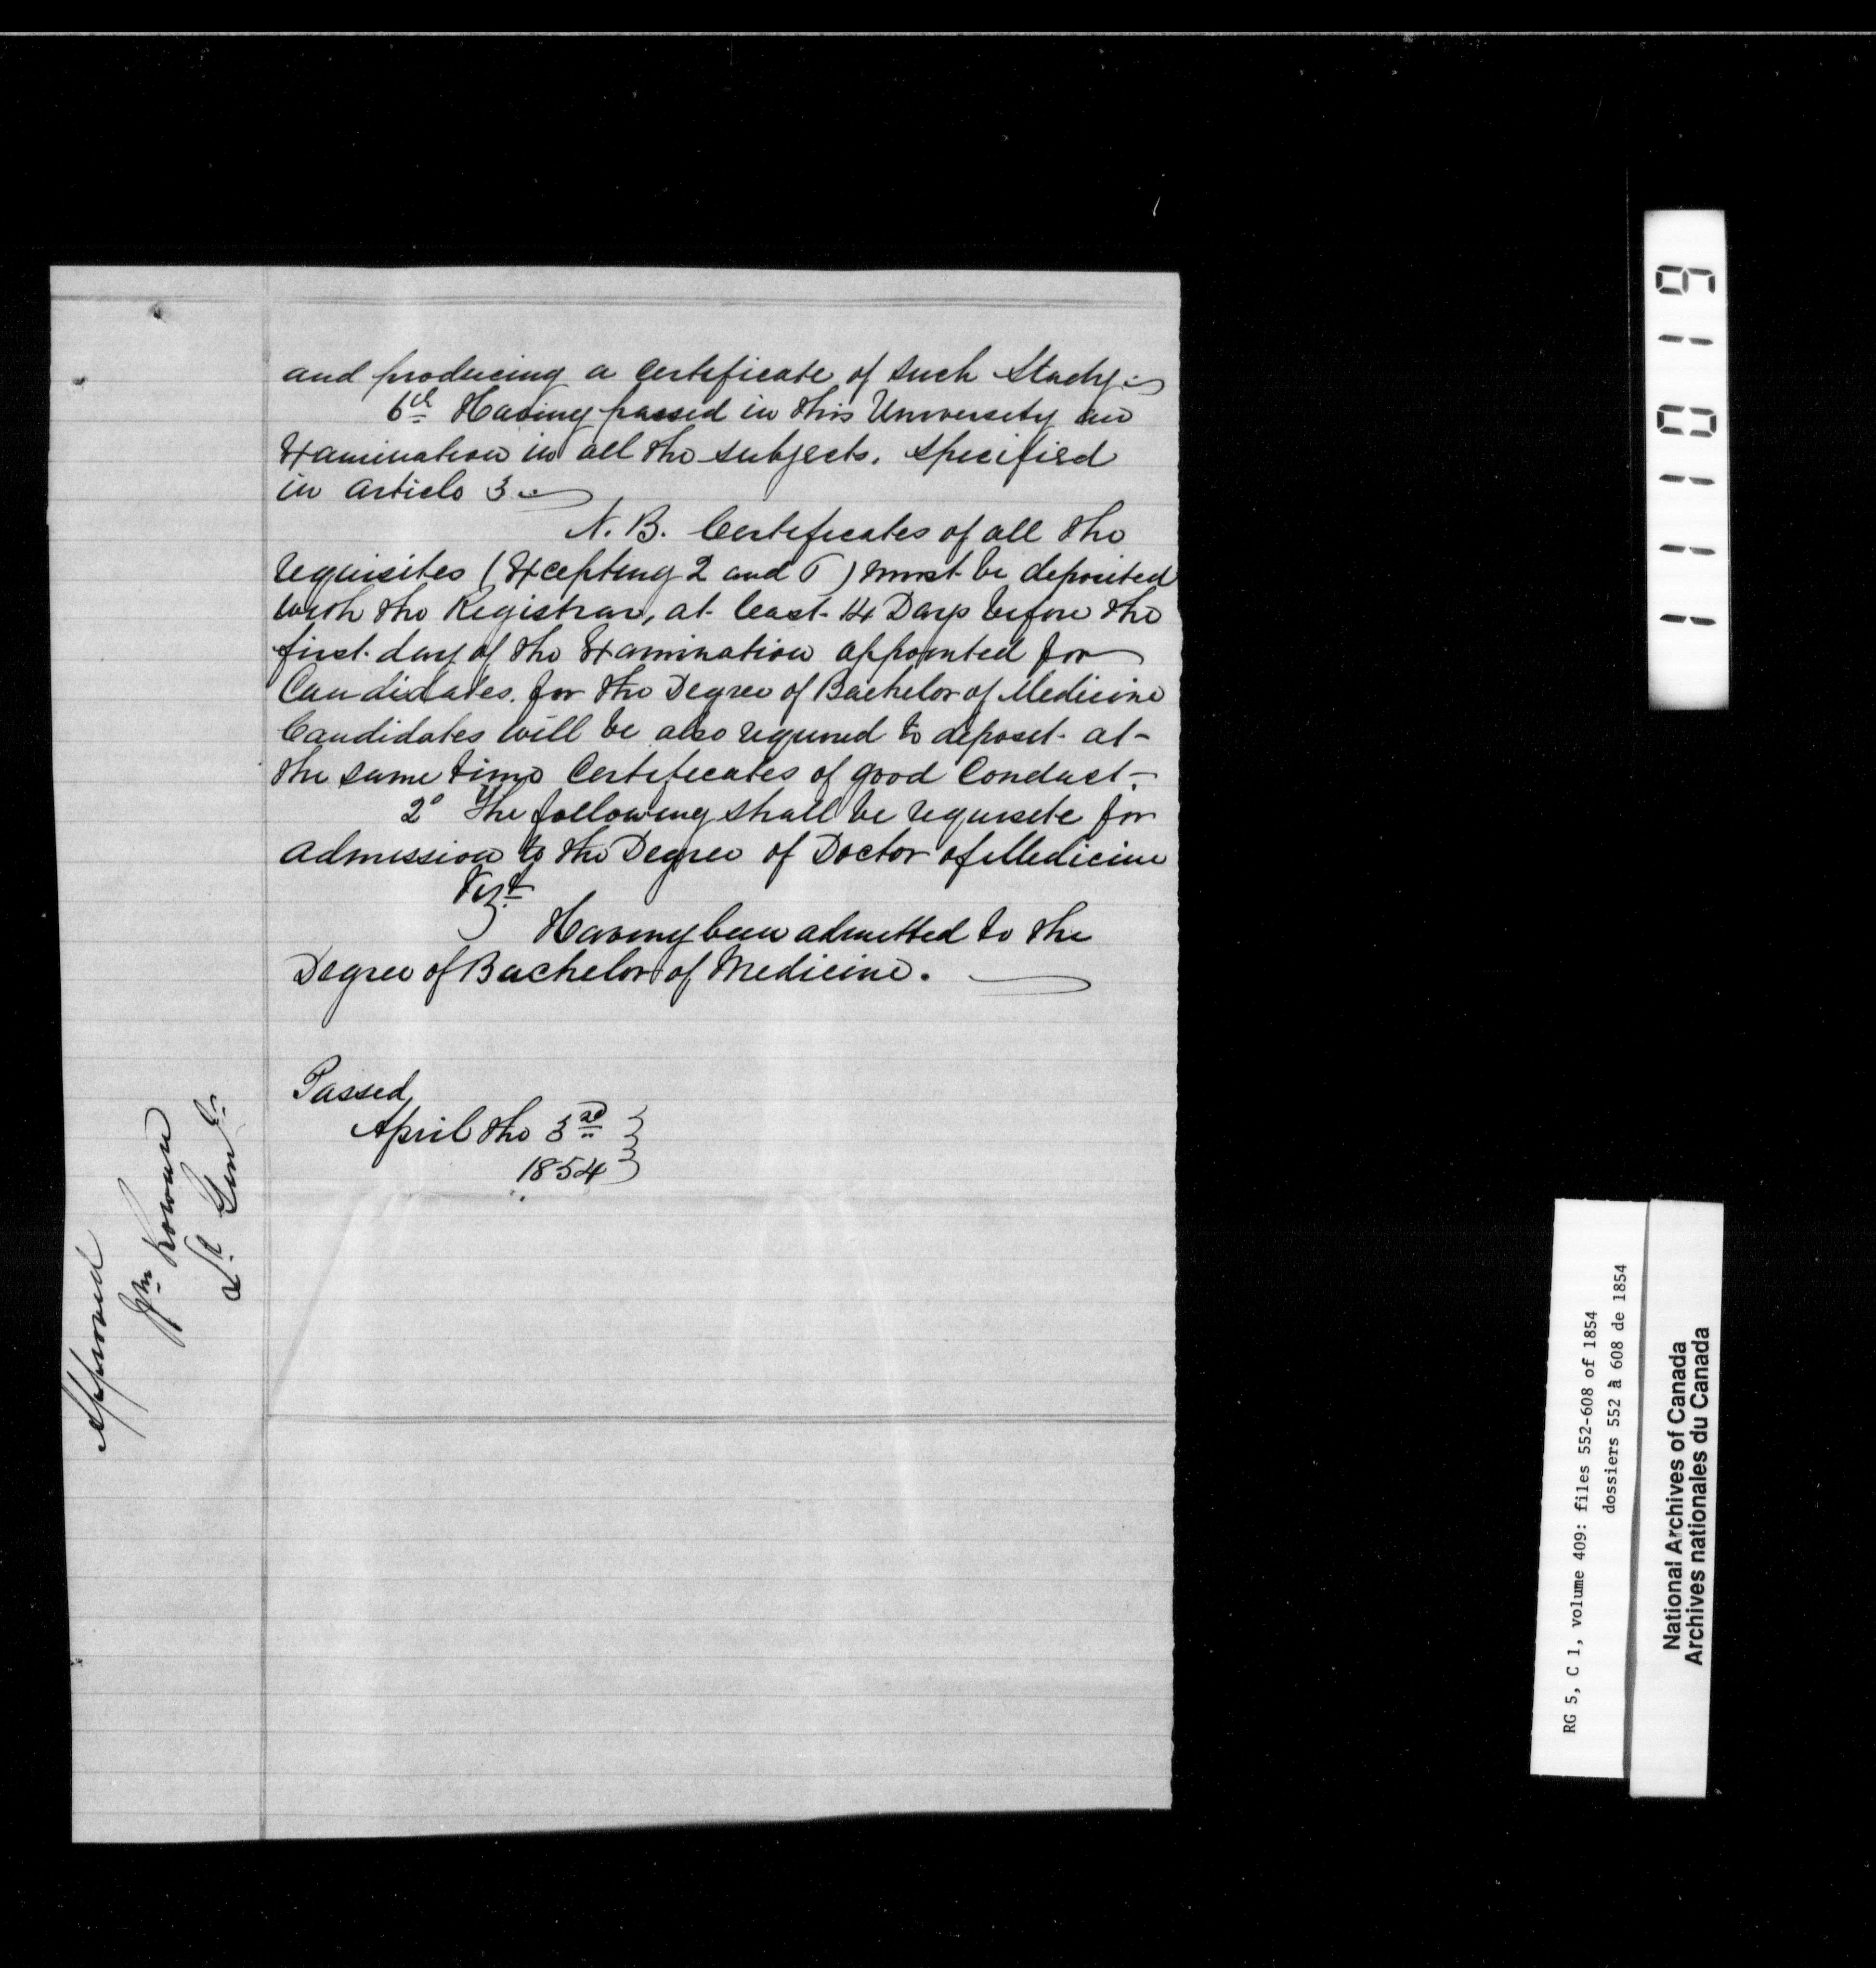 and producing a Certificate of such Study.
6th Having passed in this University an
Examination in all the subjects, specified
in Article 3.
N.B. Certificates of all the
requisites (Excepting 2 and 6) must be deposited
with the Registrar, at least 14 Days before the
first day of the Examination appointed for
Candidates for the Degree of Bachelor of Medicine
Candidates will be also required to deposit at
the same time Certificates of good Conduct.
2° The following shall be requisite for
admission to the Degree of Doctor of Medicine
Vizt
Having been admitted to the
Degree of Bachelor of Medicine.
Passed,
April the 3rd
1854
Approved
Wm Rowan
Lt Genl
111019
RG 5, C 1, volume 409: files 552-608 of 1854
dossiers 552 à 608 de 1854
National Archives of Canada
Archives nationales du Canada